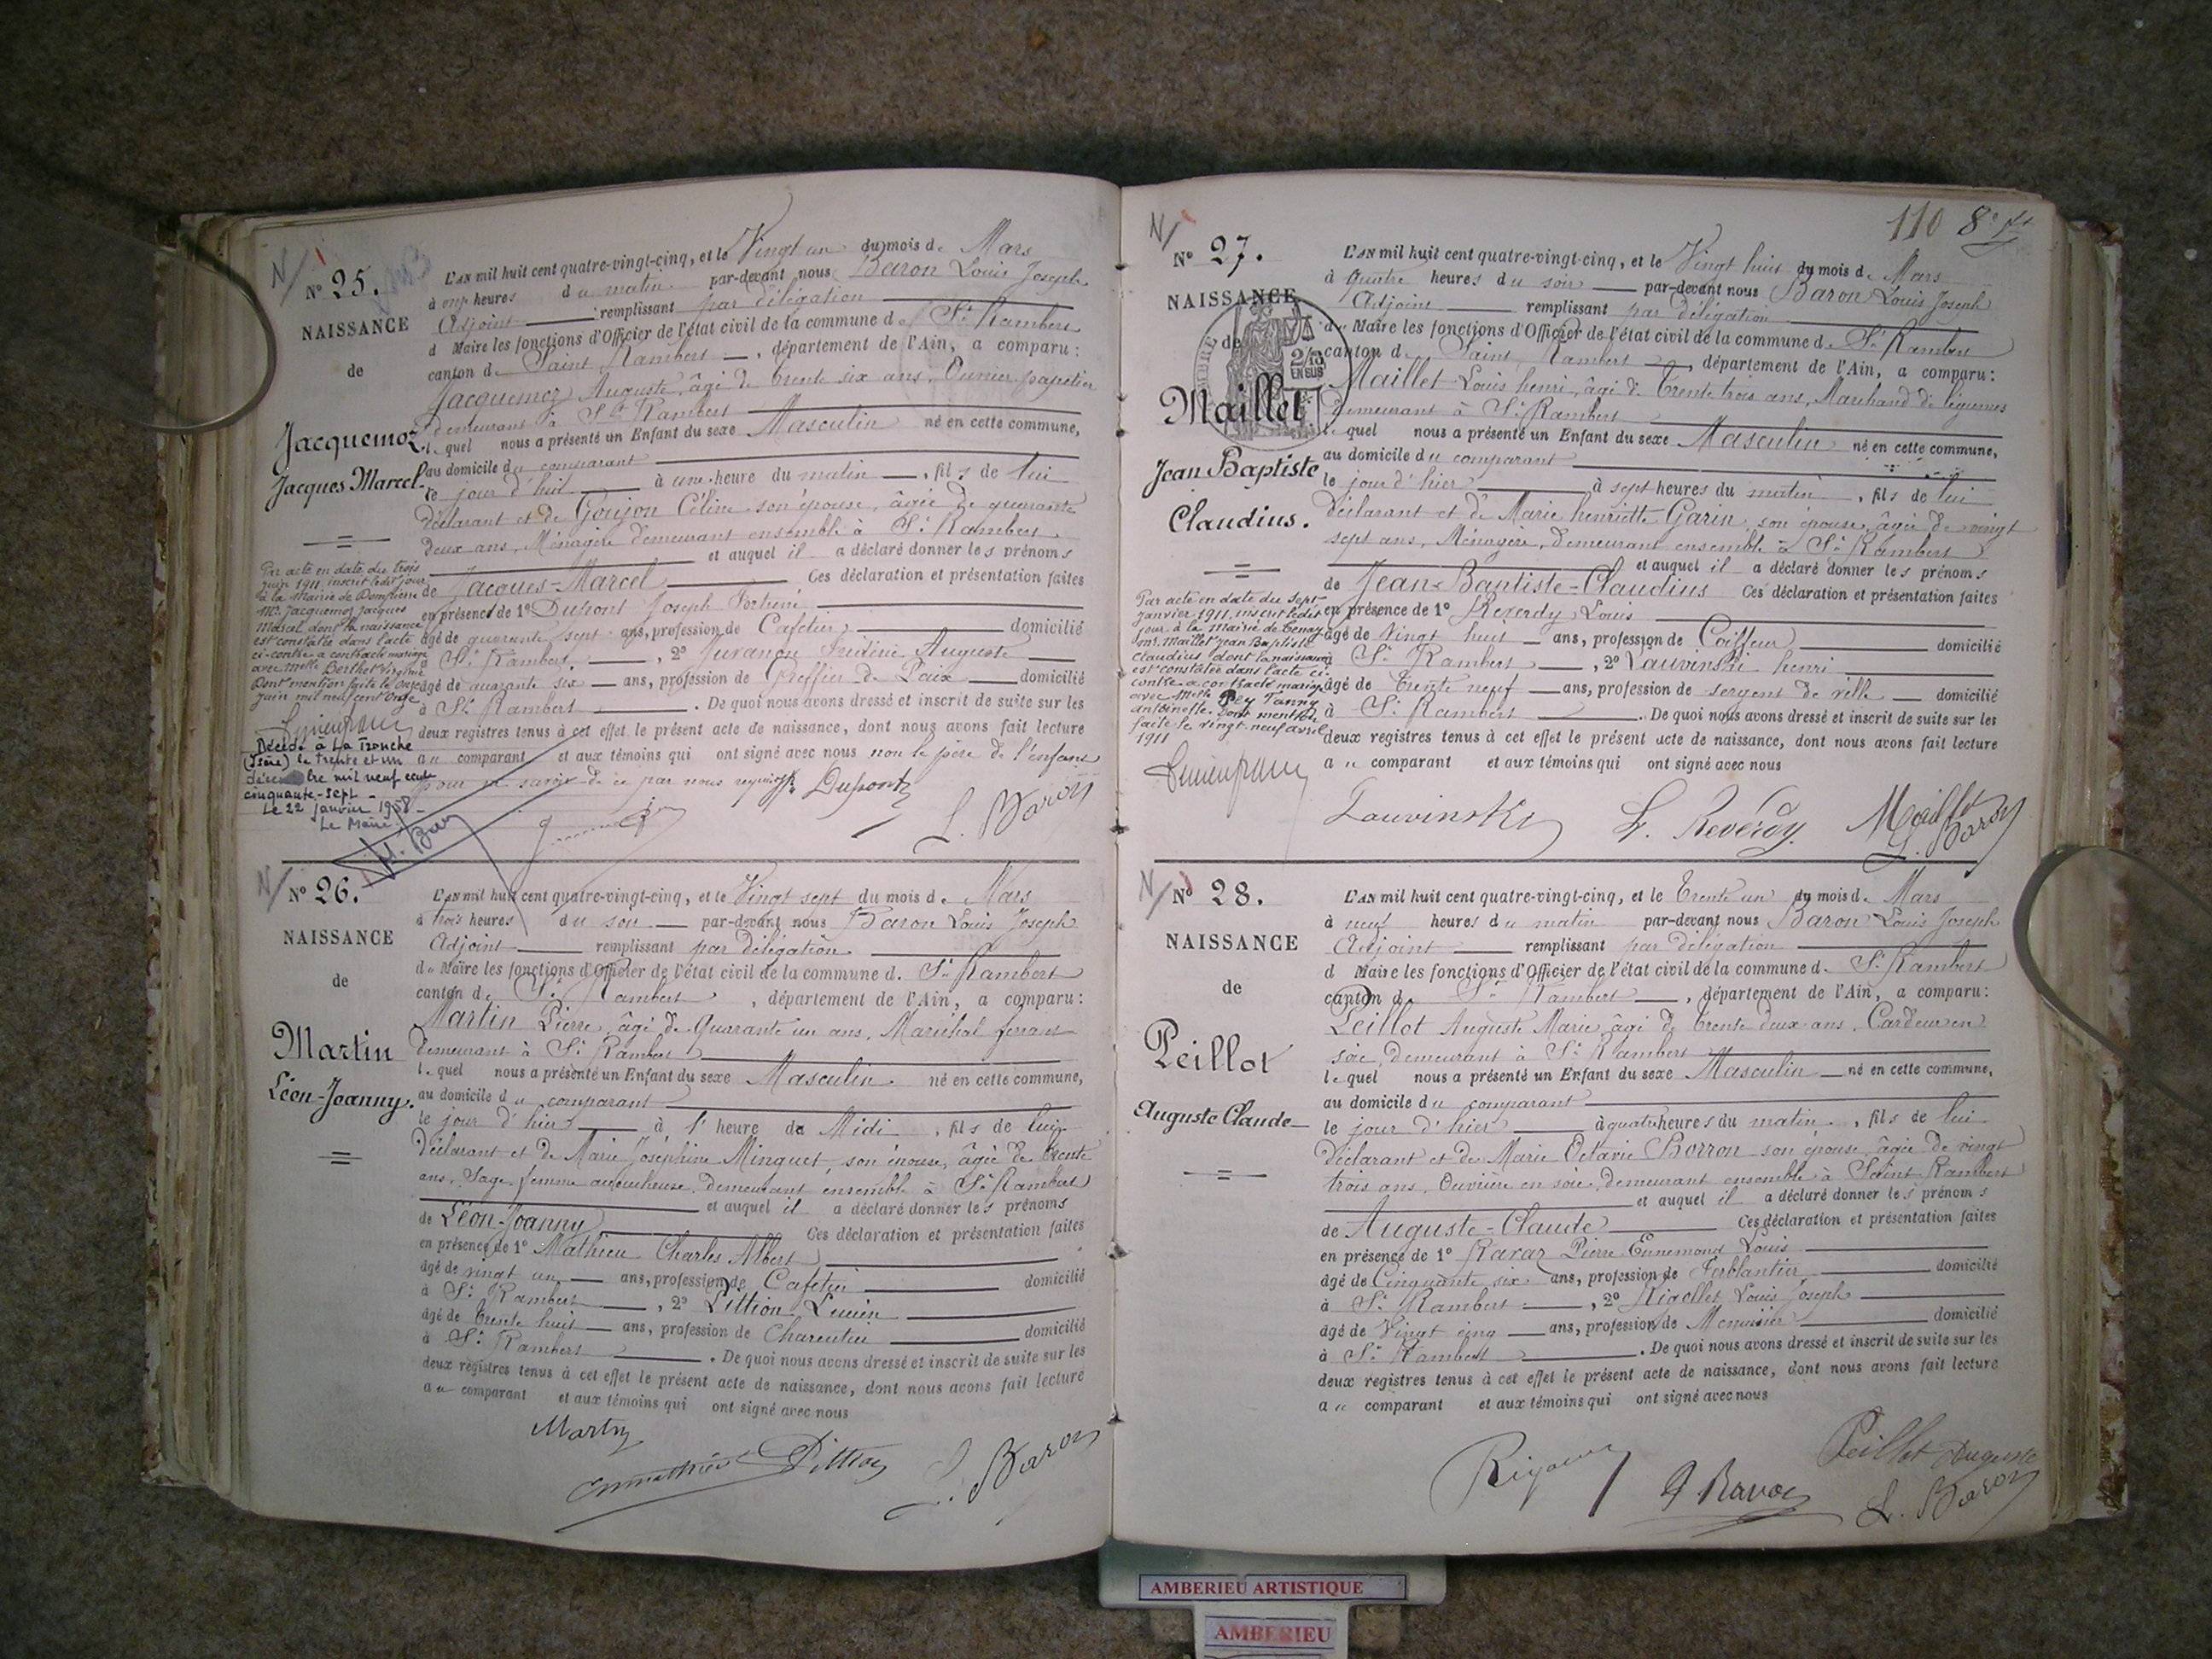 N° 25.
NAISSANCE
de
Jacquemoz
Jacques Marcel.
L'AN mil huit cent quatre-vingt-cinq, et le Vingt un du mois de Mars
à onze heures du matin par-devant nous Baron Louis Joseph
Adjoint remplissant par délégation
d Maire les fonctions d'Officier de l'état civil de la commune d St Rambert
canton de Saint Rambert, département de l'Ain, a comparu:
Jacquemoz Auguste, âgé de trente six ans, Ouvrier papetier
demeurant à St Rambert
lequel nous a présenté un Enfant du sexe Masculin né en cette commune,
au domicile du comparant
le jour d'hui à une heure du matin, fils de lui
déclarant et de Goujon Céline son épouse, âgée de quarante
deux ans, Ménagère demeurant ensemble à St Rambert
et auquel il a déclaré donner les prénoms
de Jacques-Marcel Ces déclaration et présentation faites
en présence de 1° Dupont Joseph
âgé de quarante sept ans, profession de Cafetier domicilié
à St Rambert, 2° Juvanon Auguste
âgé de quarante six ans, profession de Greffier de Paix domicilié
à St Rambert. De quoi nous avons dressé et inscrit de suite sur les
deux registres tenus à cet effet le présent acte de naissance, dont nous avons fait lecture
au comparant et aux témoins qui ont signé avec nous non le père de l'enfant
pour ne savoir de ce par nous requis
Dupont
L. Baron
Par acte en date du trois
juin 1911, inscrit ledit jour
à la Mairie de Dompierre
Mr. Jacquemoz Jacques
Marcel dont la naissance
est constatée dans l'acte
ci-contre a contracté mariage
avec Melle Berthet Virginie
Dont mention faite le onze
juin mil neuf cent onze
Décédé à La Tronche
(Isère) le trente et un
décembre mil neuf cent
cinquante-sept
Le 22 janvier 1958.
Le Maire
N° 26.
NAISSANCE
de
Martin
Léon-Joanny.
L'AN mil huit cent quatre-vingt-cinq, et le Vingt sept du mois de Mars
à trois heures du soir par-devant nous Baron Louis Joseph
Adjoint remplissant par délégation
du Maire les fonctions d'Officier de l'état civil de la commune d. St Rambert
canton de St Rambert, département de l'Ain, a comparu:
Martin Pierre, âgé de Quarante un ans, Maréchal ferrant
demeurant à St Rambert
lequel nous a présenté un Enfant du sexe Masculin né en cette commune,
au domicile du comparant
le jour d'hier à l' heure de Midi, fils de lui
déclarant et de Marie Joséphine Minguet, son épouse, âgée de trente
ans, Sage femme accoucheuse, demeurant ensemble à St Rambert
et auquel il a déclaré donner les prénoms
de Léon-Joanny Ces déclaration et présentation faites
en présence de 1° Mathieu Charles Albert
âgé de vingt un ans, profession de Cafetier domicilié
à St Rambert, 2° Dittion Lucien
âgé de trente huit ans, profession de Charcutier domicilié
à St Rambert. De quoi nous avons dressé et inscrit de suite sur les
deux registres tenus à cet effet le présent acte de naissance, dont nous avons fait lecture
au comparant et aux témoins qui ont signé avec nous
Martin
Dittion
L. Baron
110 8e
N° 27.
NAISSANCE
de
Maillet
Jean Baptiste
Claudius.
L'AN mil huit cent quatre-vingt-cinq, et le Vingt huit du mois de Mars
à quatre heures du soir par-devant nous Baron Louis Joseph
Adjoint remplissant par délégation
du Maire les fonctions d'Officier de l'état civil de la commune d. St Rambert
canton de Saint Rambert département de l'Ain, a comparu:
Maillet Louis henri, âgé de trente trois ans, Marchand de légumes
demeurant à St Rambert
lequel nous a présenté un Enfant du sexe Masculin né en cette commune,
au domicile du comparant
le jour d'hier à sept heures du matin, fils de lui
déclarant et de Marie henriette Garin, son épouse, âgée de vingt
sept ans, Ménagère, demeurant ensemble à St Rambert
et auquel il a déclaré donner les prénoms
de Jean-Baptiste-Claudius Ces déclaration et présentation faites
en présence de 1° Reverdy Louis
âgé de Vingt huit ans, profession de Coiffeur domicilié
à St Rambert, 2° Lauvinski henri
âgé de trente neuf ans, profession de sergent de ville domicilié
à St Rambert. De quoi nous avons dressé et inscrit de suite sur les
deux registres tenus à cet effet le présent acte de naissance, dont nous avons fait lecture
au comparant et aux témoins qui ont signé avec nous
Lauvinski L. Reverdy. Maillet
L. Baron
Par acte en date du sept
janvier 1911, inscrit ledit
jour à la Mairie de Tenay
Mr. Maillet Jean Baptiste
Claudius dont la naissance
est constatée dans l'acte ci-
contre a contracté mariage
avec Melle Pey Fanny
Antoinette. Dont mention
faite le vingt-neuf avril
1911
2/10
EN SUS
N° 28.
NAISSANCE
de
Peillot
Auguste Claude
L'AN mil huit cent quatre-vingt-cinq, et le Trente un du mois de Mars
à neuf heures du matin par-devant nous Baron Louis Joseph
Adjoint remplissant par délégation
d Maire les fonctions d'Officier de l'état civil de la commune d. St Rambert
canton de St Rambert, département de l'Ain, a comparu:
Peillot Auguste Marie, âgé de trente deux ans, Cardeur en
soie, demeurant à St Rambert
lequel nous a présenté un Enfant du sexe Masculin né en cette commune,
au domicile du comparant
le jour d'hier à quatre heures du matin, fils de lui
déclarant et de Marie Octavie Borron son épouse, âgée de vingt
trois ans, Ouvrière en soie, demeurant ensemble à Saint Rambert
et auquel il a déclaré donner les prénoms
de Auguste-Claude Ces déclaration et présentation faites
en présence de 1° Ravaz Pierre Ennemond Louis
âgé de Cinquante six ans, profession de Ferblantier domicilié
à St Rambert, 2° Rigollet Louis Joseph
âgé de Vingt cinq ans, profession de Menuisier domicilié
à St Rambert. De quoi nous avons dressé et inscrit de suite sur les
deux registres tenus à cet effet le présent acte de naissance, dont nous avons fait lecture
au comparant et aux témoins qui ont signé avec nous
Peillot Auguste
Ravaz
L. Baron
AMBERIEU ARTISTIQUE
AMBERIEU